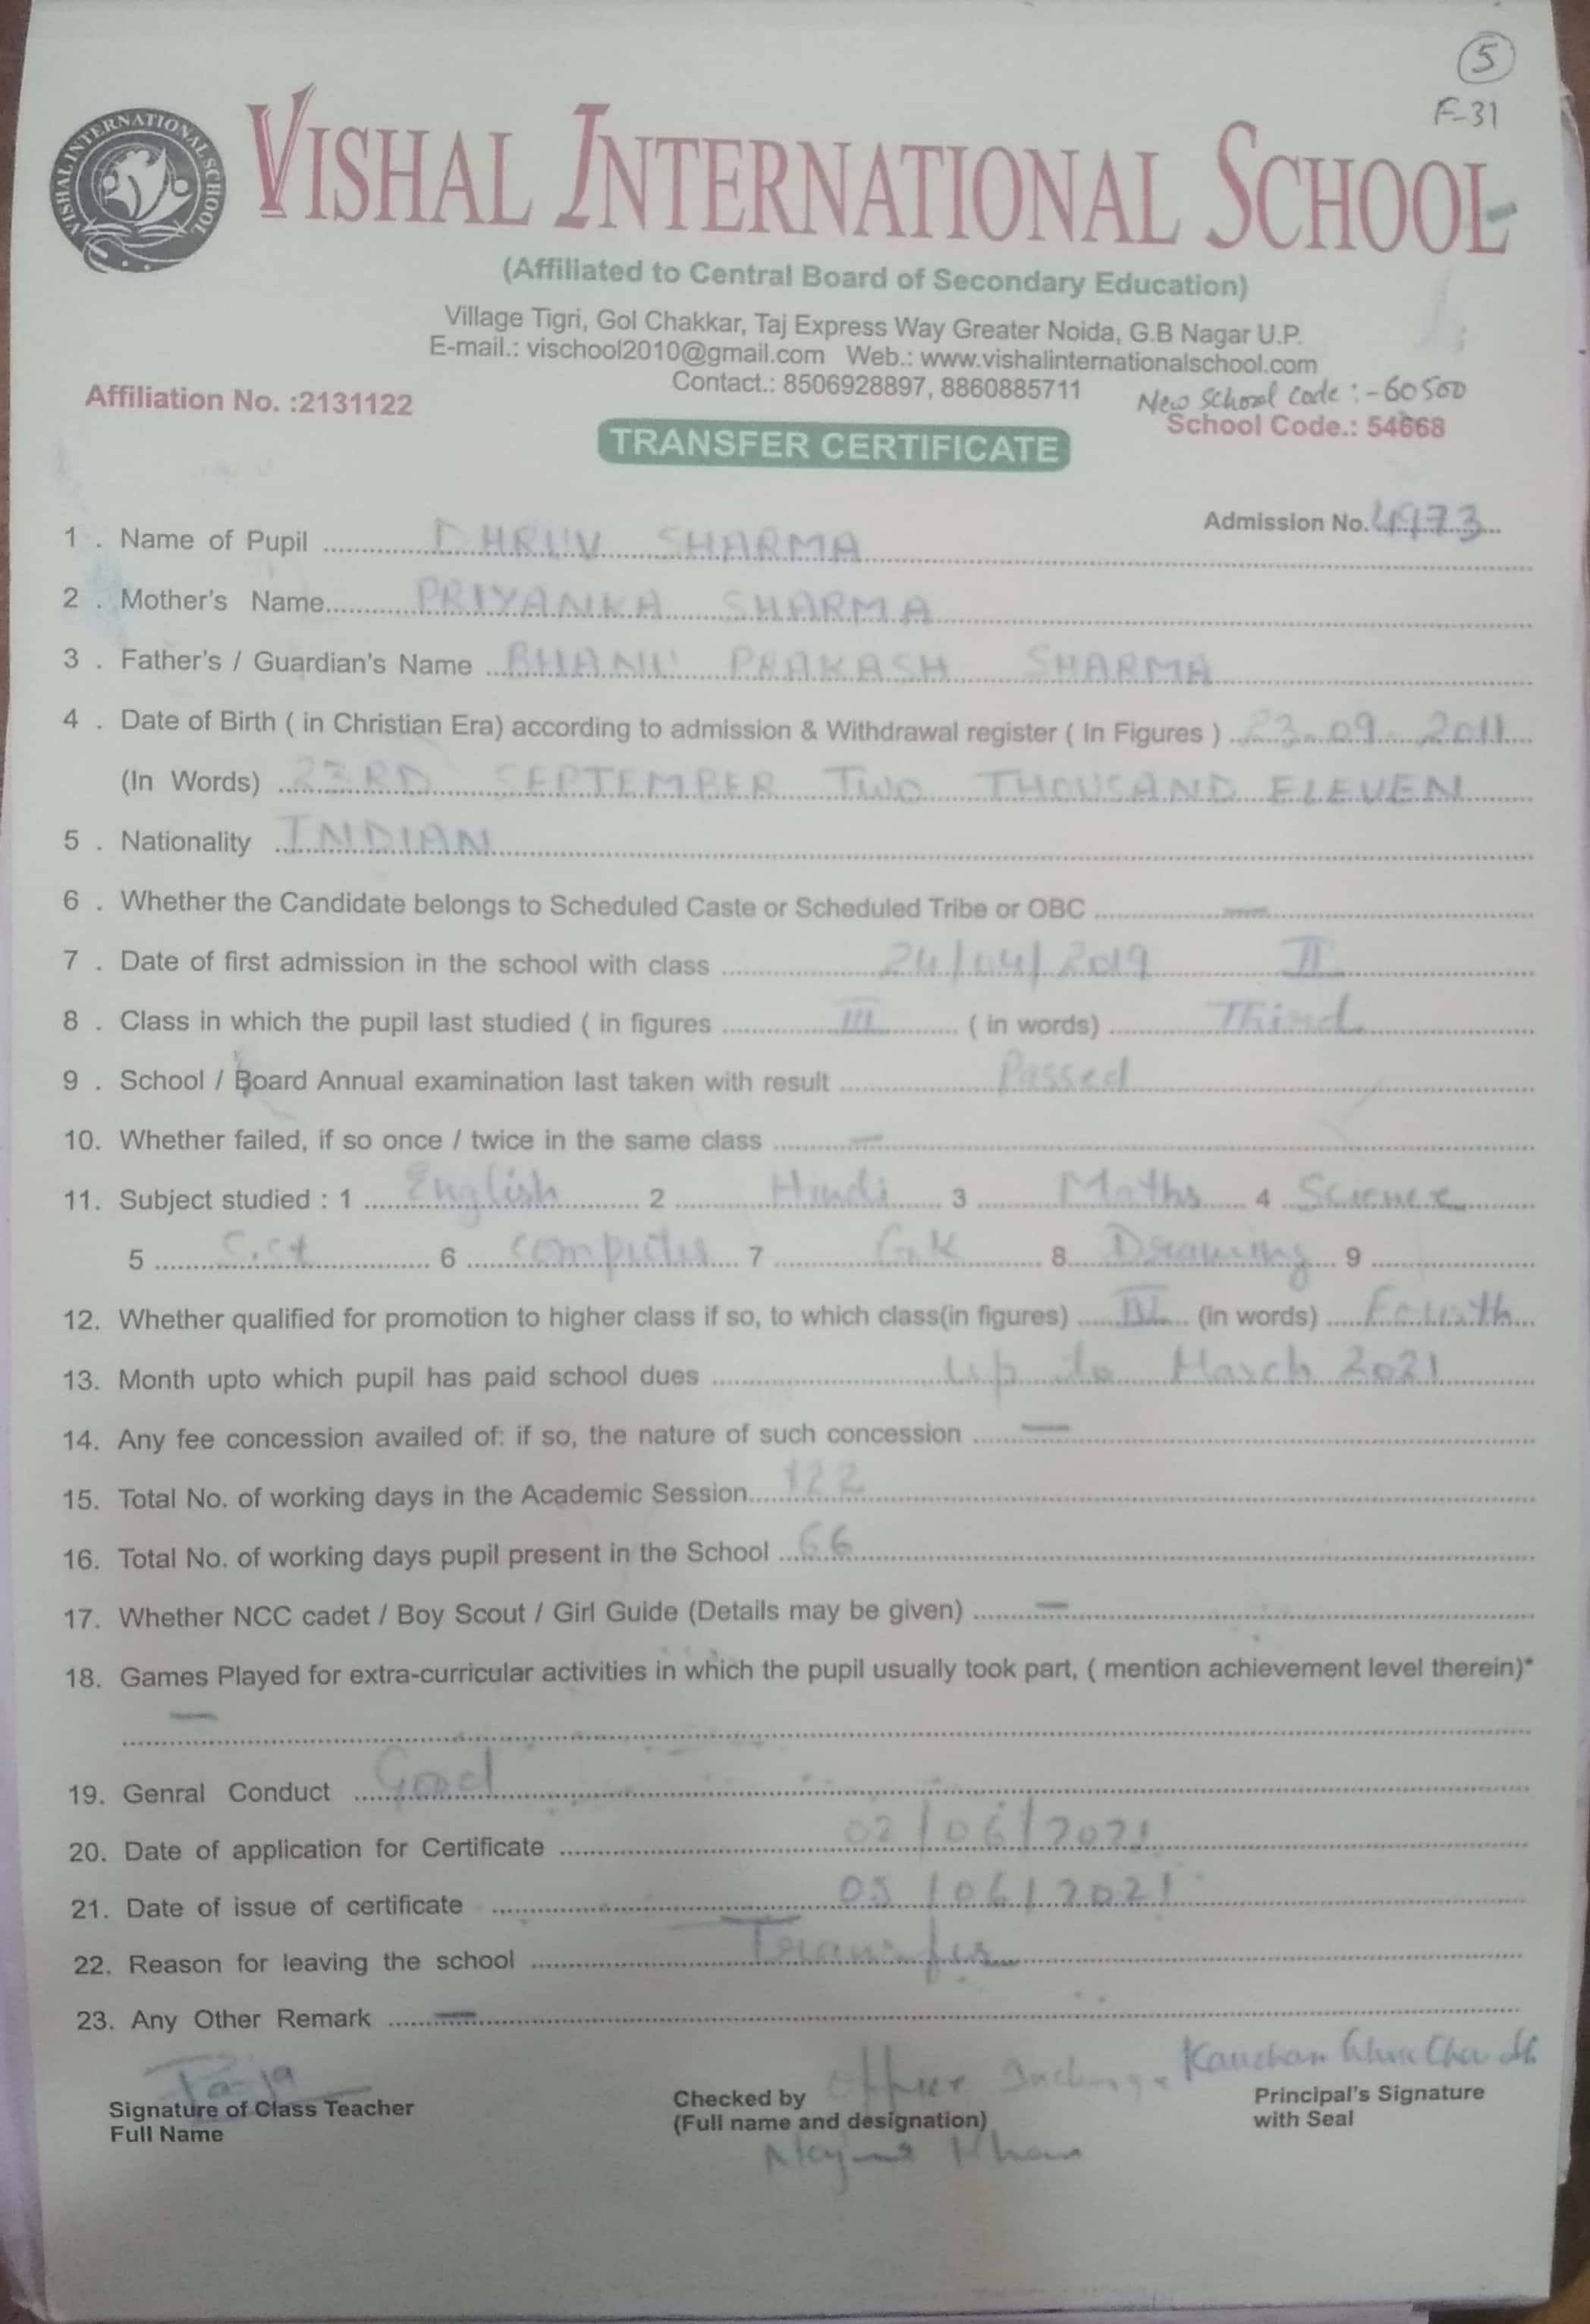 5
F-31
VISHAL INTERNATIONAL SCHOOL
VISHAL INTERNATIONAL SCHOOL
(Affiliated to Central Board of Secondary Education)
Village Tigri, Gol Chakkar, Taj Express Way Greater Noida, G.B Nagar U.P.
E-mail.: vischool2010@gmail.com Web.: www.vishalinternationalschool.com
Contact.: 8506928897, 8860885711
New School Code :- 60500
Affiliation No. :2131122
School Code.: 54668
TRANSFER CERTIFICATE
Admission No. 4973
1 . Name of Pupil DHRUV SHARMA
2 . Mother's Name PRIYANKA SHARMA
3 . Father's / Guardian's Name BHANU PRAKASH SHARMA
4 . Date of Birth ( in Christian Era) according to admission & Withdrawal register ( In Figures ) 23-09-2011
(In Words) 23RD SEPTEMBER TWO THOUSAND ELEVEN
5 . Nationality INDIAN
6 . Whether the Candidate belongs to Scheduled Caste or Scheduled Tribe or OBC —
7 . Date of first admission in the school with class 24/04/2019 II
8 . Class in which the pupil last studied ( in figures III ( in words) Third
9 . School / Board Annual examination last taken with result Passed
10. Whether failed, if so once / twice in the same class —
11. Subject studied : 1 English 2 Hindi 3 Maths 4 Science
5 S.st 6 Computer 7 G.K 8 Drawing 9
12. Whether qualified for promotion to higher class if so, to which class(in figures) IV (in words) Fourth
13. Month upto which pupil has paid school dues up to March 2021
14. Any fee concession availed of: if so, the nature of such concession —
15. Total No. of working days in the Academic Session 122
16. Total No. of working days pupil present in the School 66
17. Whether NCC cadet / Boy Scout / Girl Guide (Details may be given) —
18. Games Played for extra-curricular activities in which the pupil usually took part, ( mention achievement level therein)*
—
19. Genral Conduct Good
20. Date of application for Certificate 02/06/2021
21. Date of issue of certificate 05/06/2021
22. Reason for leaving the school Transfer
23. Any Other Remark —
Office Incharge Kanchan
Signature of Class Teacher Checked by Principal's Signature
Full Name (Full name and designation) with Seal
Khan